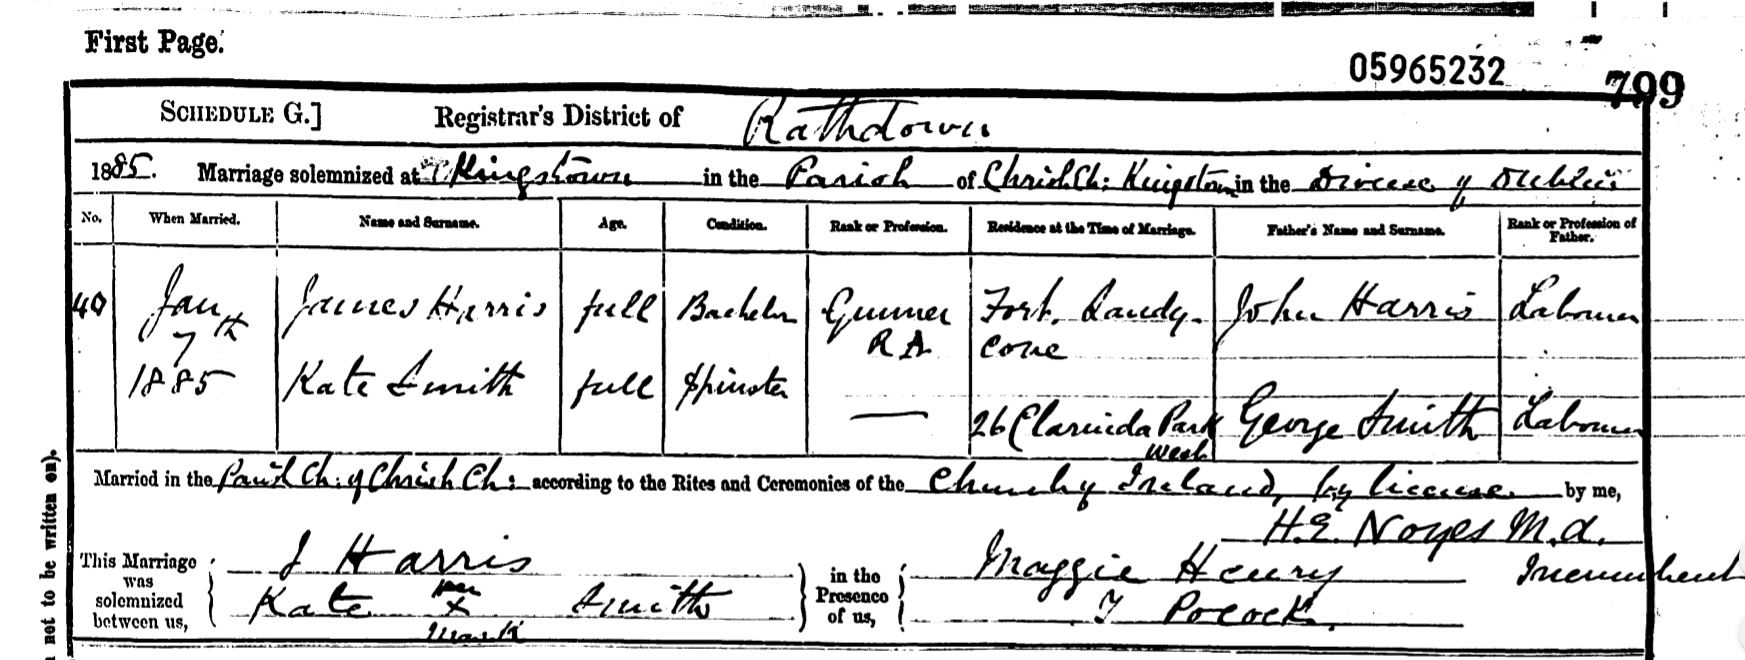 First Page.
05965232
799
SCHEDULE G.] Registrar's District of Rathdown
1885. Marriage solemnized at Kingstown in the Parish of Christ Ch: Kingstown in the Diocese of Dublin
No. When Married. Name and Surname. Age. Condition. Rank or Profession. Residence at the Time of Marriage. Father's Name and Surname. Rank or Profession of Father.
40 Jan 7th 1885 James Harris full Bachelor Gunner R A Fort. Sandy-cove John Harris Labourer
Kate Smith full Spinster — 26 Clarinda Park West George Smith Labourer
Married in the Parish Ch: of Christ Ch: according to the Rites and Ceremonies of the Church of Ireland, by license by me,
H.E. Noyes M.A.
Incumbent
This Marriage was solemnized between us, J Harris
Kate her x mark Smith
in the Presence of us, Maggie Henry
T Pocock.
not to be written on).